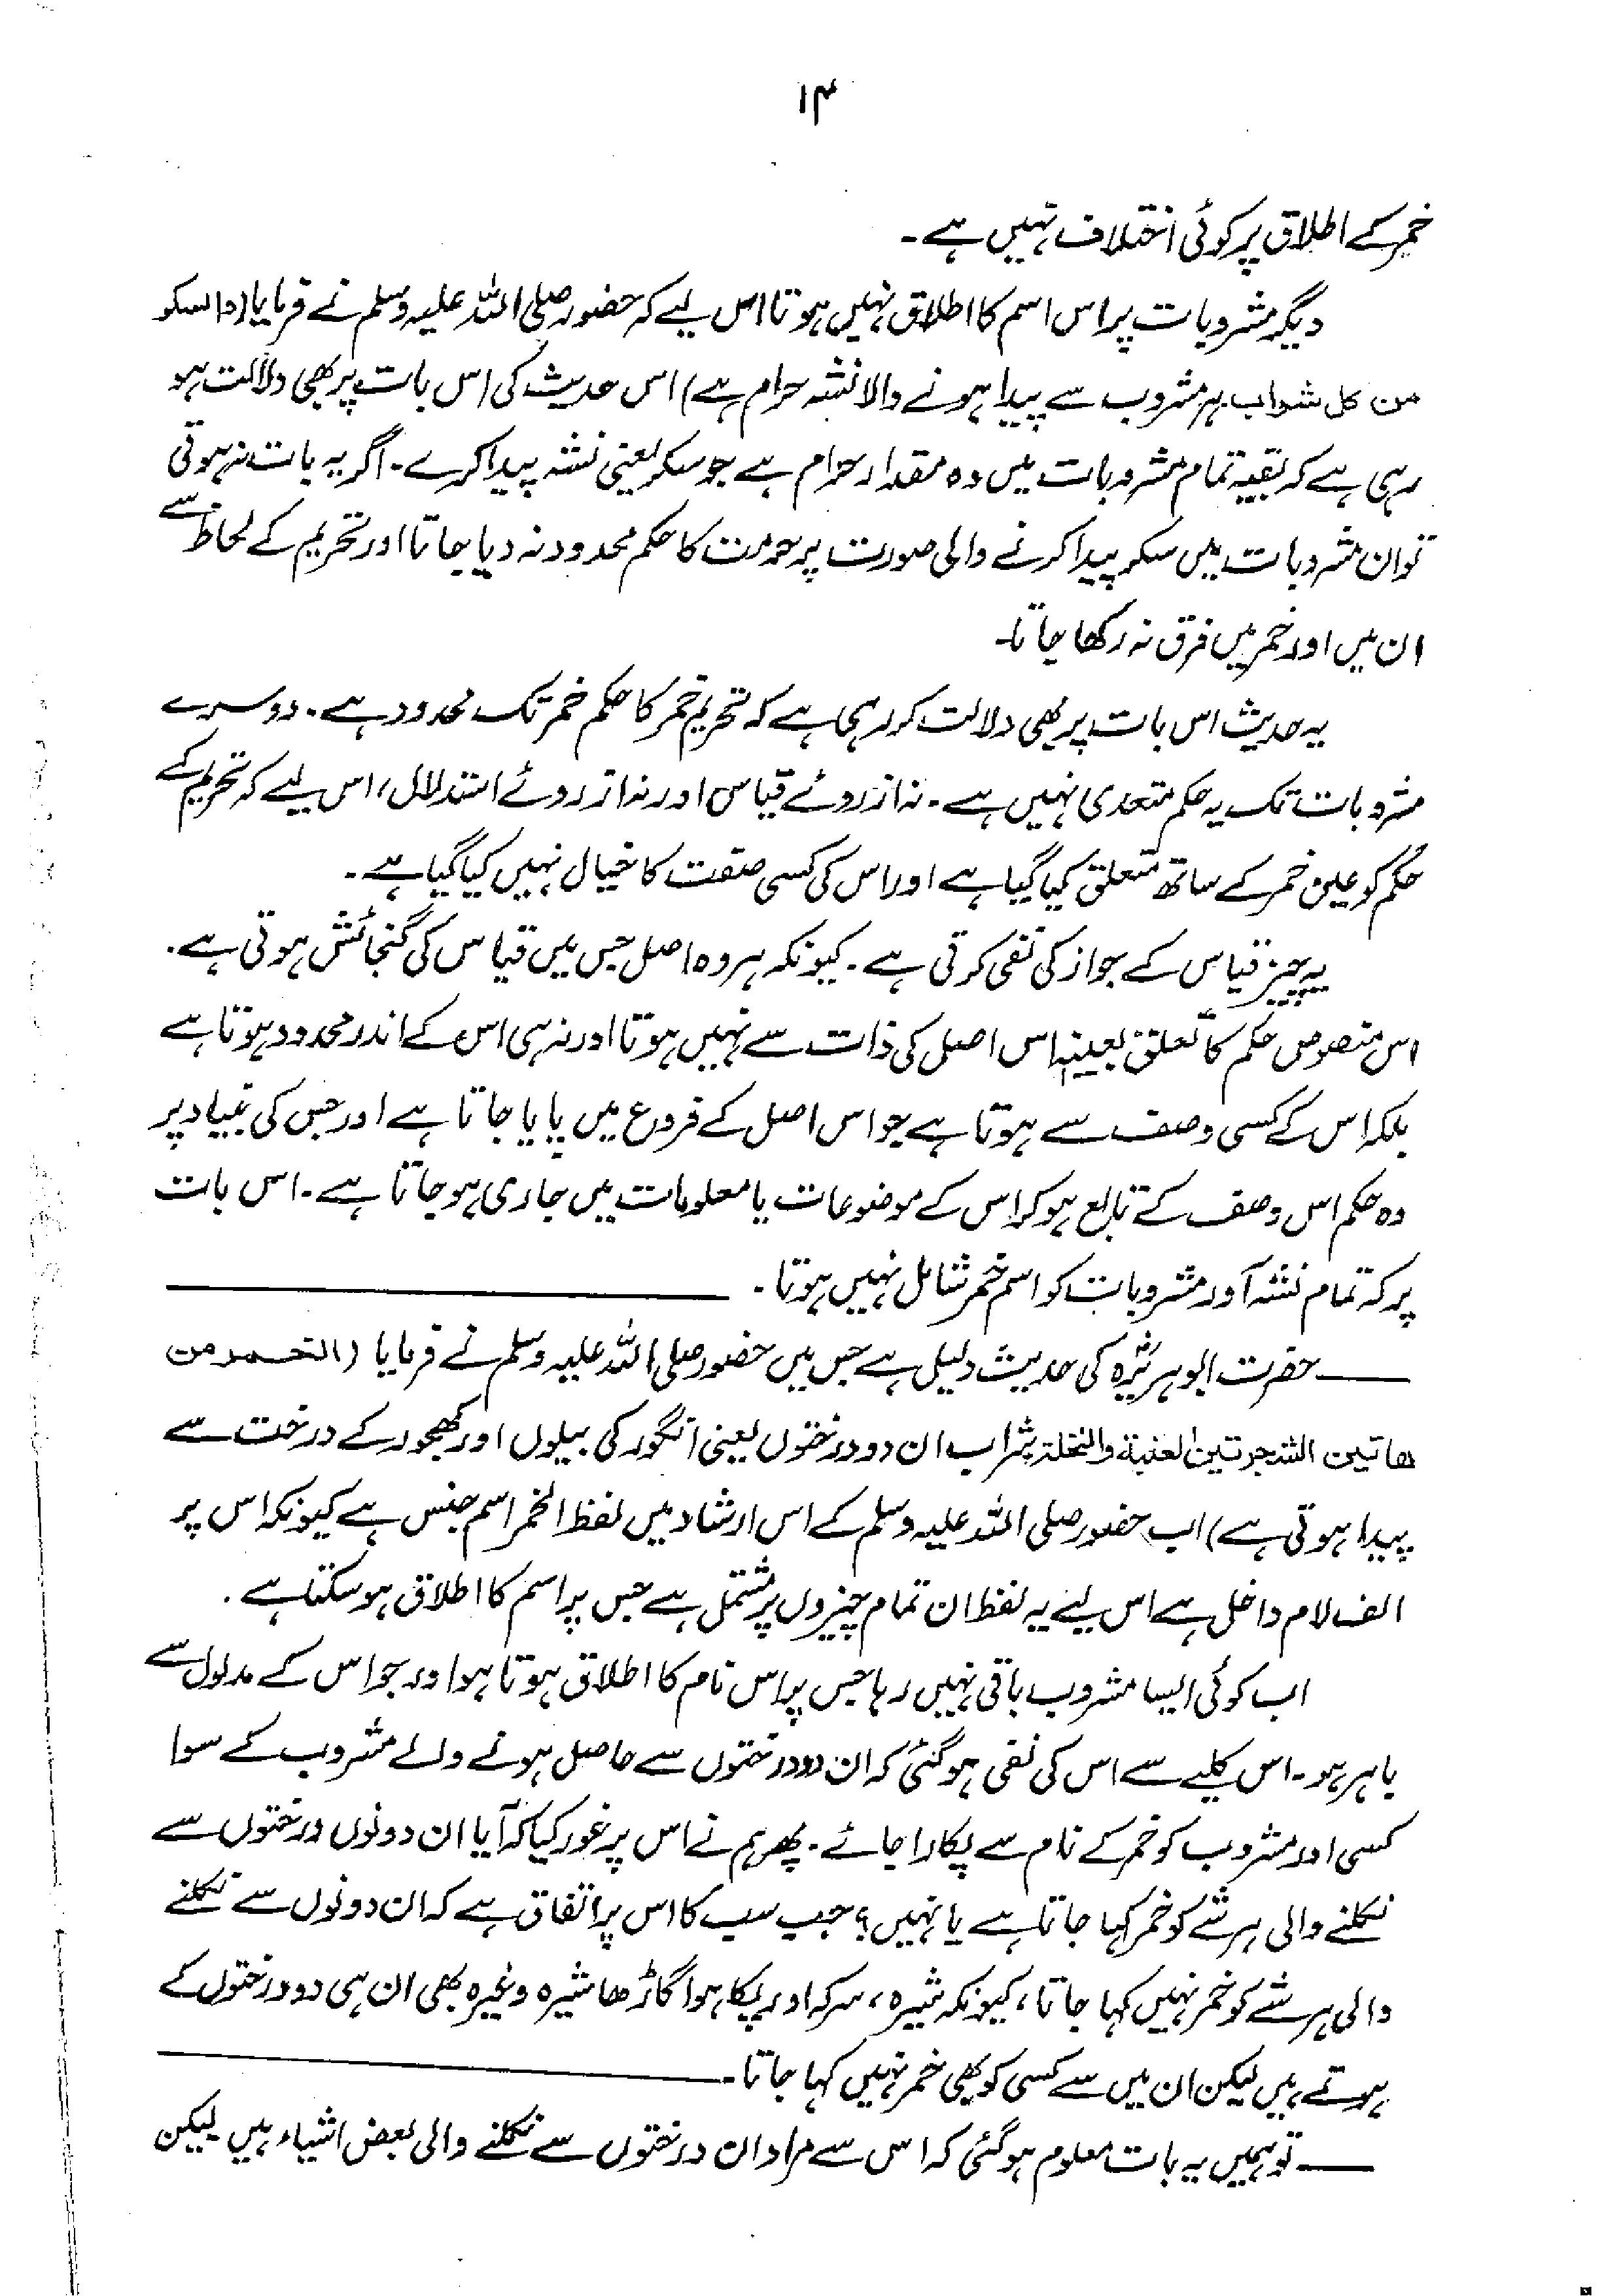 ۱۴
خمر کے اطلاق پر کوئی اختلاف نہیں ہے۔
دیگر مشروبات پر اس اسم کا اطلاق نہیں ہوتا اس لیے کہ حضور صلی اللہ علیہ وسلم نے فرمایا (والسکر
من کل شراب ہر مشروب سے پیدا ہونے والا نشہ حرام ہے) اس حدیث کی اس بات پر بھی دلالت ہو
رہی ہے کہ بقیہ تمام مشروبات میں وہ مقدار حرام ہے جو سکر یعنی نشہ پیدا کرے۔ اگر یہ بات نہ ہوتی
تو ان مشروبات میں سکر پیدا کرنے والی صورت پر حرمت کا حکم محدود نہ دیا جاتا اور تحریم کے لحاظ سے
ان میں اور خمر میں فرق نہ رکھا جاتا۔
یہ حدیث اس بات پر بھی دلالت کر رہی ہے کہ تحریم خمر کا حکم خمر تک محدود ہے۔ دوسرے
مشروبات تک یہ حکم متعدی نہیں ہے۔ نہ از روئے قیاس اور نہ از روئے استدلال، اس لیے کہ تحریم کے
حکم کو عین خمر کے ساتھ متعلق کیا گیا ہے اور اس کی کسی صفت کا خیال نہیں کیا گیا ہے۔
یہ چیز قیاس کے جواز کی نفی کرتی ہے۔ کیونکہ ہر وہ اصل جس میں قیاس کی گنجائش ہوتی ہے۔
اس منصوص حکم کا تعلق بعینہٖ اس اصل کی ذات سے نہیں ہوتا اور نہ ہی اس کے اندر محدود ہوتا ہے
بلکہ اس کے کسی وصف سے ہوتا ہے جو اس اصل کے فروع میں پایا جاتا ہے اور جس کی بنیاد پر
وہ حکم اس وصف کے تابع ہو کر اس کے موضوعات یا معلومات میں جاری ہو جاتا ہے۔ اس بات
پر کہ تمام نشہ آور مشروبات کو اسم خمر شامل نہیں ہوتا۔
حضرت ابوہریرہؓ کی حدیث دلیل ہے جس میں حضور صلی اللہ علیہ وسلم نے فرمایا (الخمر من
ھاتین الشجرتین العنبۃ والنخلۃ شراب ان دو درختوں یعنی انگور کی بیلوں اور کھجور کے درخت سے
پیدا ہوتی ہے) اب حضور صلی اللہ علیہ وسلم کے اس ارشاد میں لفظ الخمر اسم جنس ہے کیونکہ اس پر
الف لام داخل ہے اس لیے یہ لفظ ان تمام چیزوں پر مشتمل ہے جس پر اسم کا اطلاق ہو سکتا ہے۔
اب کوئی ایسا مشروب باقی نہیں رہا جس پر اس نام کا اطلاق ہوتا ہو اور جو اس کے مدلول سے
باہر ہو۔ اس کلیے سے اس کی نفی ہو گئی کہ ان دو درختوں سے حاصل ہونے والے مشروب کے سوا
کسی اور مشروب کو خمر کے نام سے پکارا جائے۔ پھر ہم نے اس پر غور کیا کہ آیا ان دونوں درختوں سے
نکلنے والی ہر شے کو خمر کہا جاتا ہے یا نہیں؟ جب سب کا اس پر اتفاق ہے کہ ان دونوں سے نکلنے
والی ہر شے کو خمر نہیں کہا جاتا، کیونکہ شیرہ، سرکہ اور پکا ہوا گاڑھا شیرہ وغیرہ بھی ان ہی دو درختوں کے
ہوتے ہیں لیکن ان میں سے کسی کو بھی خمر نہیں کہا جاتا۔
تو ہمیں یہ بات معلوم ہو گئی کہ اس سے مراد ان درختوں سے نکلنے والی بعض اشیاء ہیں لیکن